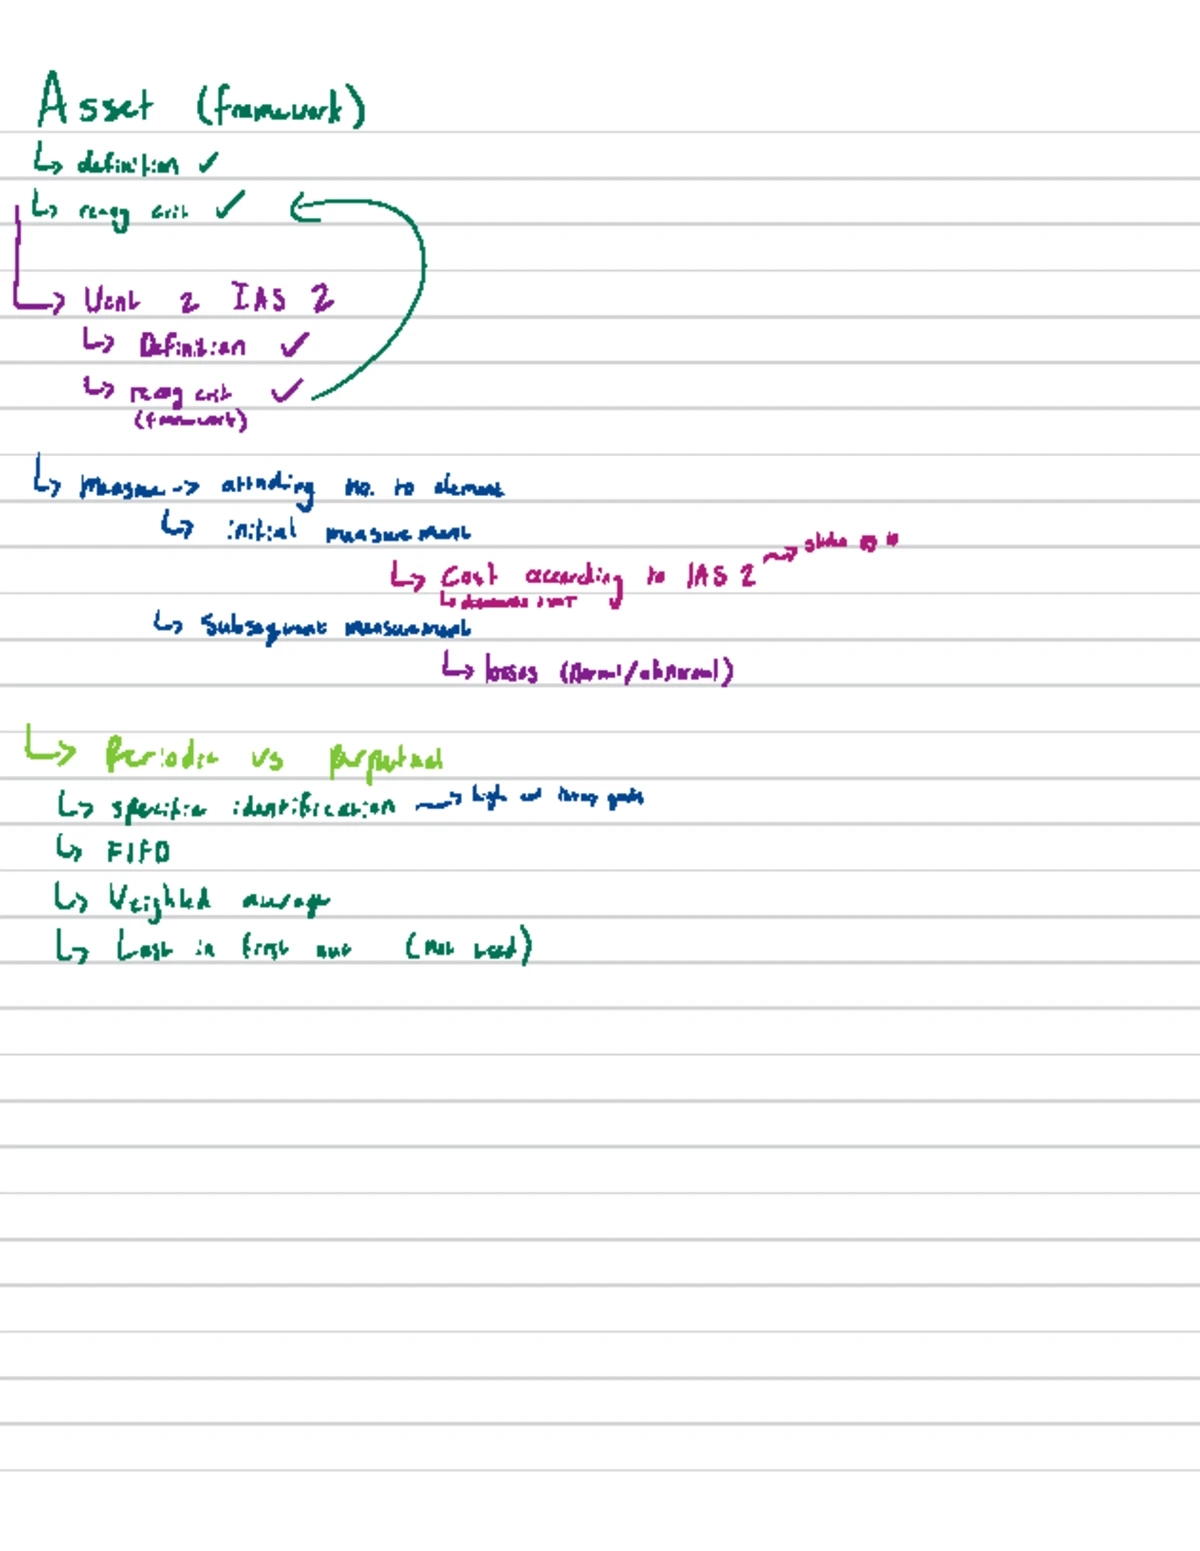 Asset (framework)
↳ definition ✓
↳ recog crit ✓
↳ Went 2 IAS 2
↳ Definition ✓
↳ recog crit ✓
(framework)
↳ Measure -> attending no. to element
↳ initial measurement
↳ Cost according to IAS 2 → slides
↳ discounts
↳ Subsequent measurement
↳ losses (Normal/abnormal)
↳ Periodic vs perpetual
↳ specific identification → high goods
↳ FIFO
↳ Weighted average
↳ Last in first out (Not used)